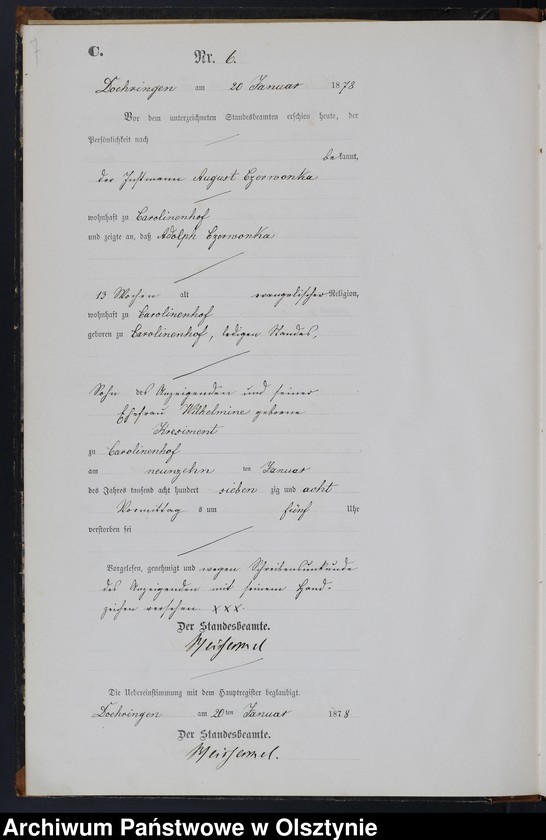 7
C.
Nr. 6.
Doehringen am 20 Januar 1878
Vor dem unterzeichneten Standesbeamten erschien heute, der
Persönlichkeit nach
bekannt,
der Instmann August Czerwonka
wohnhaft zu Carolinenhof
und zeigte an, daß Adolph Czerwonka
13 Wochen alt evangelischer Religion,
wohnhaft zu Carolinenhof
geboren zu Carolinenhof, ledigen Standes,
Sohn des Anzeigenden und seiner
Ehefrau Wilhelmine geborne
zu Carolinenhof
am neunzehn ten Januar
des Jahres tausend acht hundert sieben zig und acht
Vormittags um fünf Uhr
verstorben sei
Vorgelesen, genehmigt und wegen Schreibensunkunde
des Anzeigenden mit seinem Hand-
zeichen versehen XXX
Der Standesbeamte.
Die Uebereinstimmung mit dem Hauptregister beglaubigt.
Doehringen am 20ten Januar 1878
Der Standesbeamte.
Archiwum Państwowe w Olsztynie